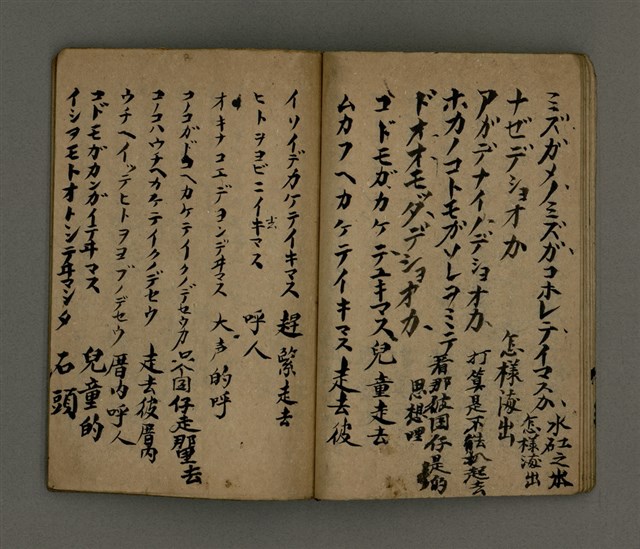 ミズガメノミズガコホレテイマスか、水缸之水怎樣海出
ナゼデショオカ 怎樣海出
アガデナイノデショオカ、打算是不能趴起去
ホカノコトモガソレヲミシテ 看那彼囝仔是的
ドオオモダデショオカ、思想哩
コドモガカケテユキマス、兒童走去
ムカフヘカケテイキマス 走去彼
イソイデカケテイキマス 趕緊走去
ヒトヲヨビニイキマス 呼人
オキナコエデヨンデヰマス 大声的呼
コノコガドコヘカケテイクノデセウカ 只个囝仔走那里去
コノコハウチヘカケテイクノデセウ 走去彼厝内
ウチヘイッテヒトヲヨブノデセウ 厝内呼人
コドモガカンガイテヰマス 兒童的
イシヲモトオトンテヰマシタ 石頭